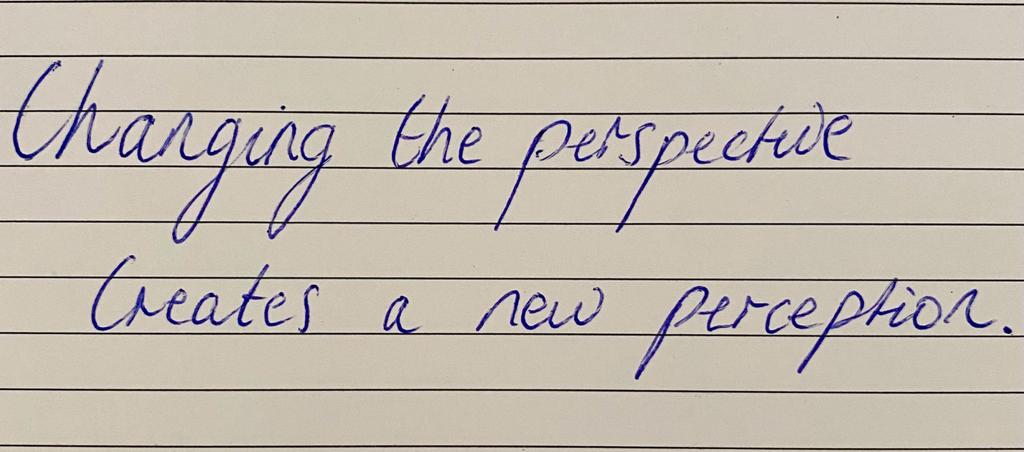 Changing the perspective
Creates a new perception.